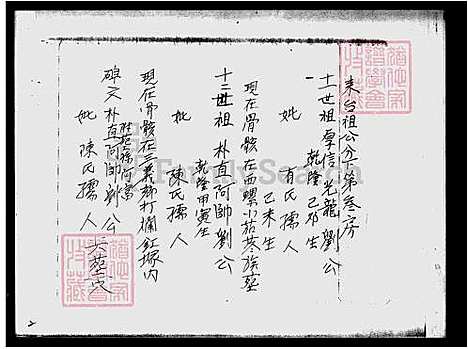 來台祖公分下第叁房
十一世祖 厚信 光龍 劉公
乾隆己卯生
妣 有氏孺人
己未生
現在骨骸在西螺小茄苳族塋
十二世祖 朴直阿帥劉公
乾隆甲寅生
妣 陳氏孺人
現在骨骸在三義鄉打欄缸塚內
碑文 朴直阿帥劉公
妣 陳氏孺人
之塋穴
FamilySearch